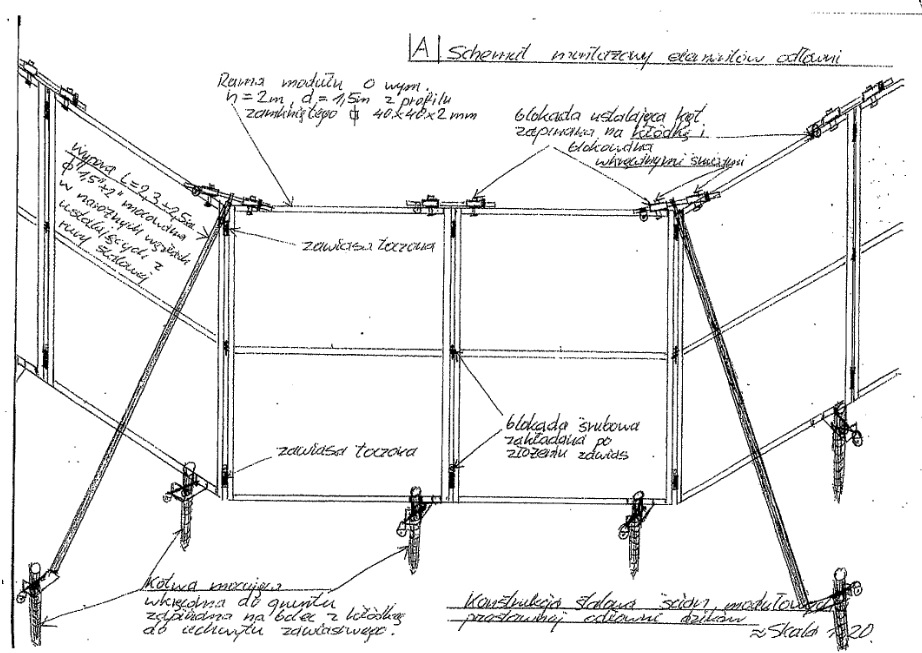 A Schemat montażowy elementów odłowni
Rama modułu o wym.
h = 2m, d = 1,5m z profilu
zamkniętego ϕ 40x40x2mm
blokada ustalająca kąt
zapinana na kłódkę i
blokowana
wkrętnymi śrubami
L = 2,3 ÷ 2,5m
ϕ 1,5" ÷ 2" mocowana
w narożnych
ustalających z
rury stalowej
zawiasa toczona
zawiasa toczona
blokada śrubowa
zakładana po
złożeniu zawias
Kotwa mocująca
wkręcana do gruntu
zapinana na bolec z kłódką
do uchwytu zawiasowego.
Konstrukcja stalowa ścian modułowa
przestawnej odłowni dzików
≈ Skala 20.